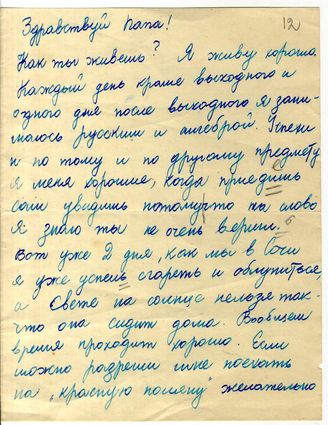 12
Здравствуй папа!
Как ты живешь? Я живу хорошо.
Каждый день краше выходного и
одного дня после выходного я зани-
маюсь русским и алгеброй. Успехи
и по тому и по другому предмету
у меня хорошие, когда приедишь
сам увидишь потомучто на слово
я знаю ты не очень вериш.
Вот уже 2 дня, как мы в Сочи
я уже успел сгареть и облупиться,
а Свете на солнце нельзя так-
что она сидит дома. Вообщем
время проходит хорошо. Если
можно разреши мне поехать
на „красную поляну" желательно